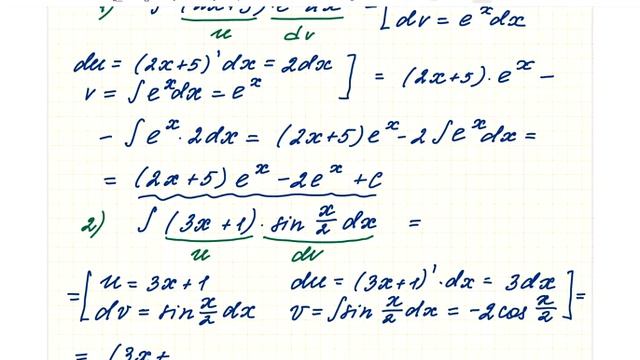 1) ∫ (2x+5) · e^x dx = [
u dv dv = e^x dx
du = (2x+5)' dx = 2dx
v = ∫ e^x dx = e^x ] = (2x+5) · e^x −
− ∫ e^x · 2dx = (2x+5) e^x − 2 ∫ e^x dx =
= (2x+5) e^x − 2e^x + C
2) ∫ (3x+1) · sin x/2 dx =
u dv
= [ u = 3x+1 du = (3x+1)' · dx = 3dx
dv = sin x/2 dx v = ∫ sin x/2 dx = −2cos x/2 ] =
= (3x+